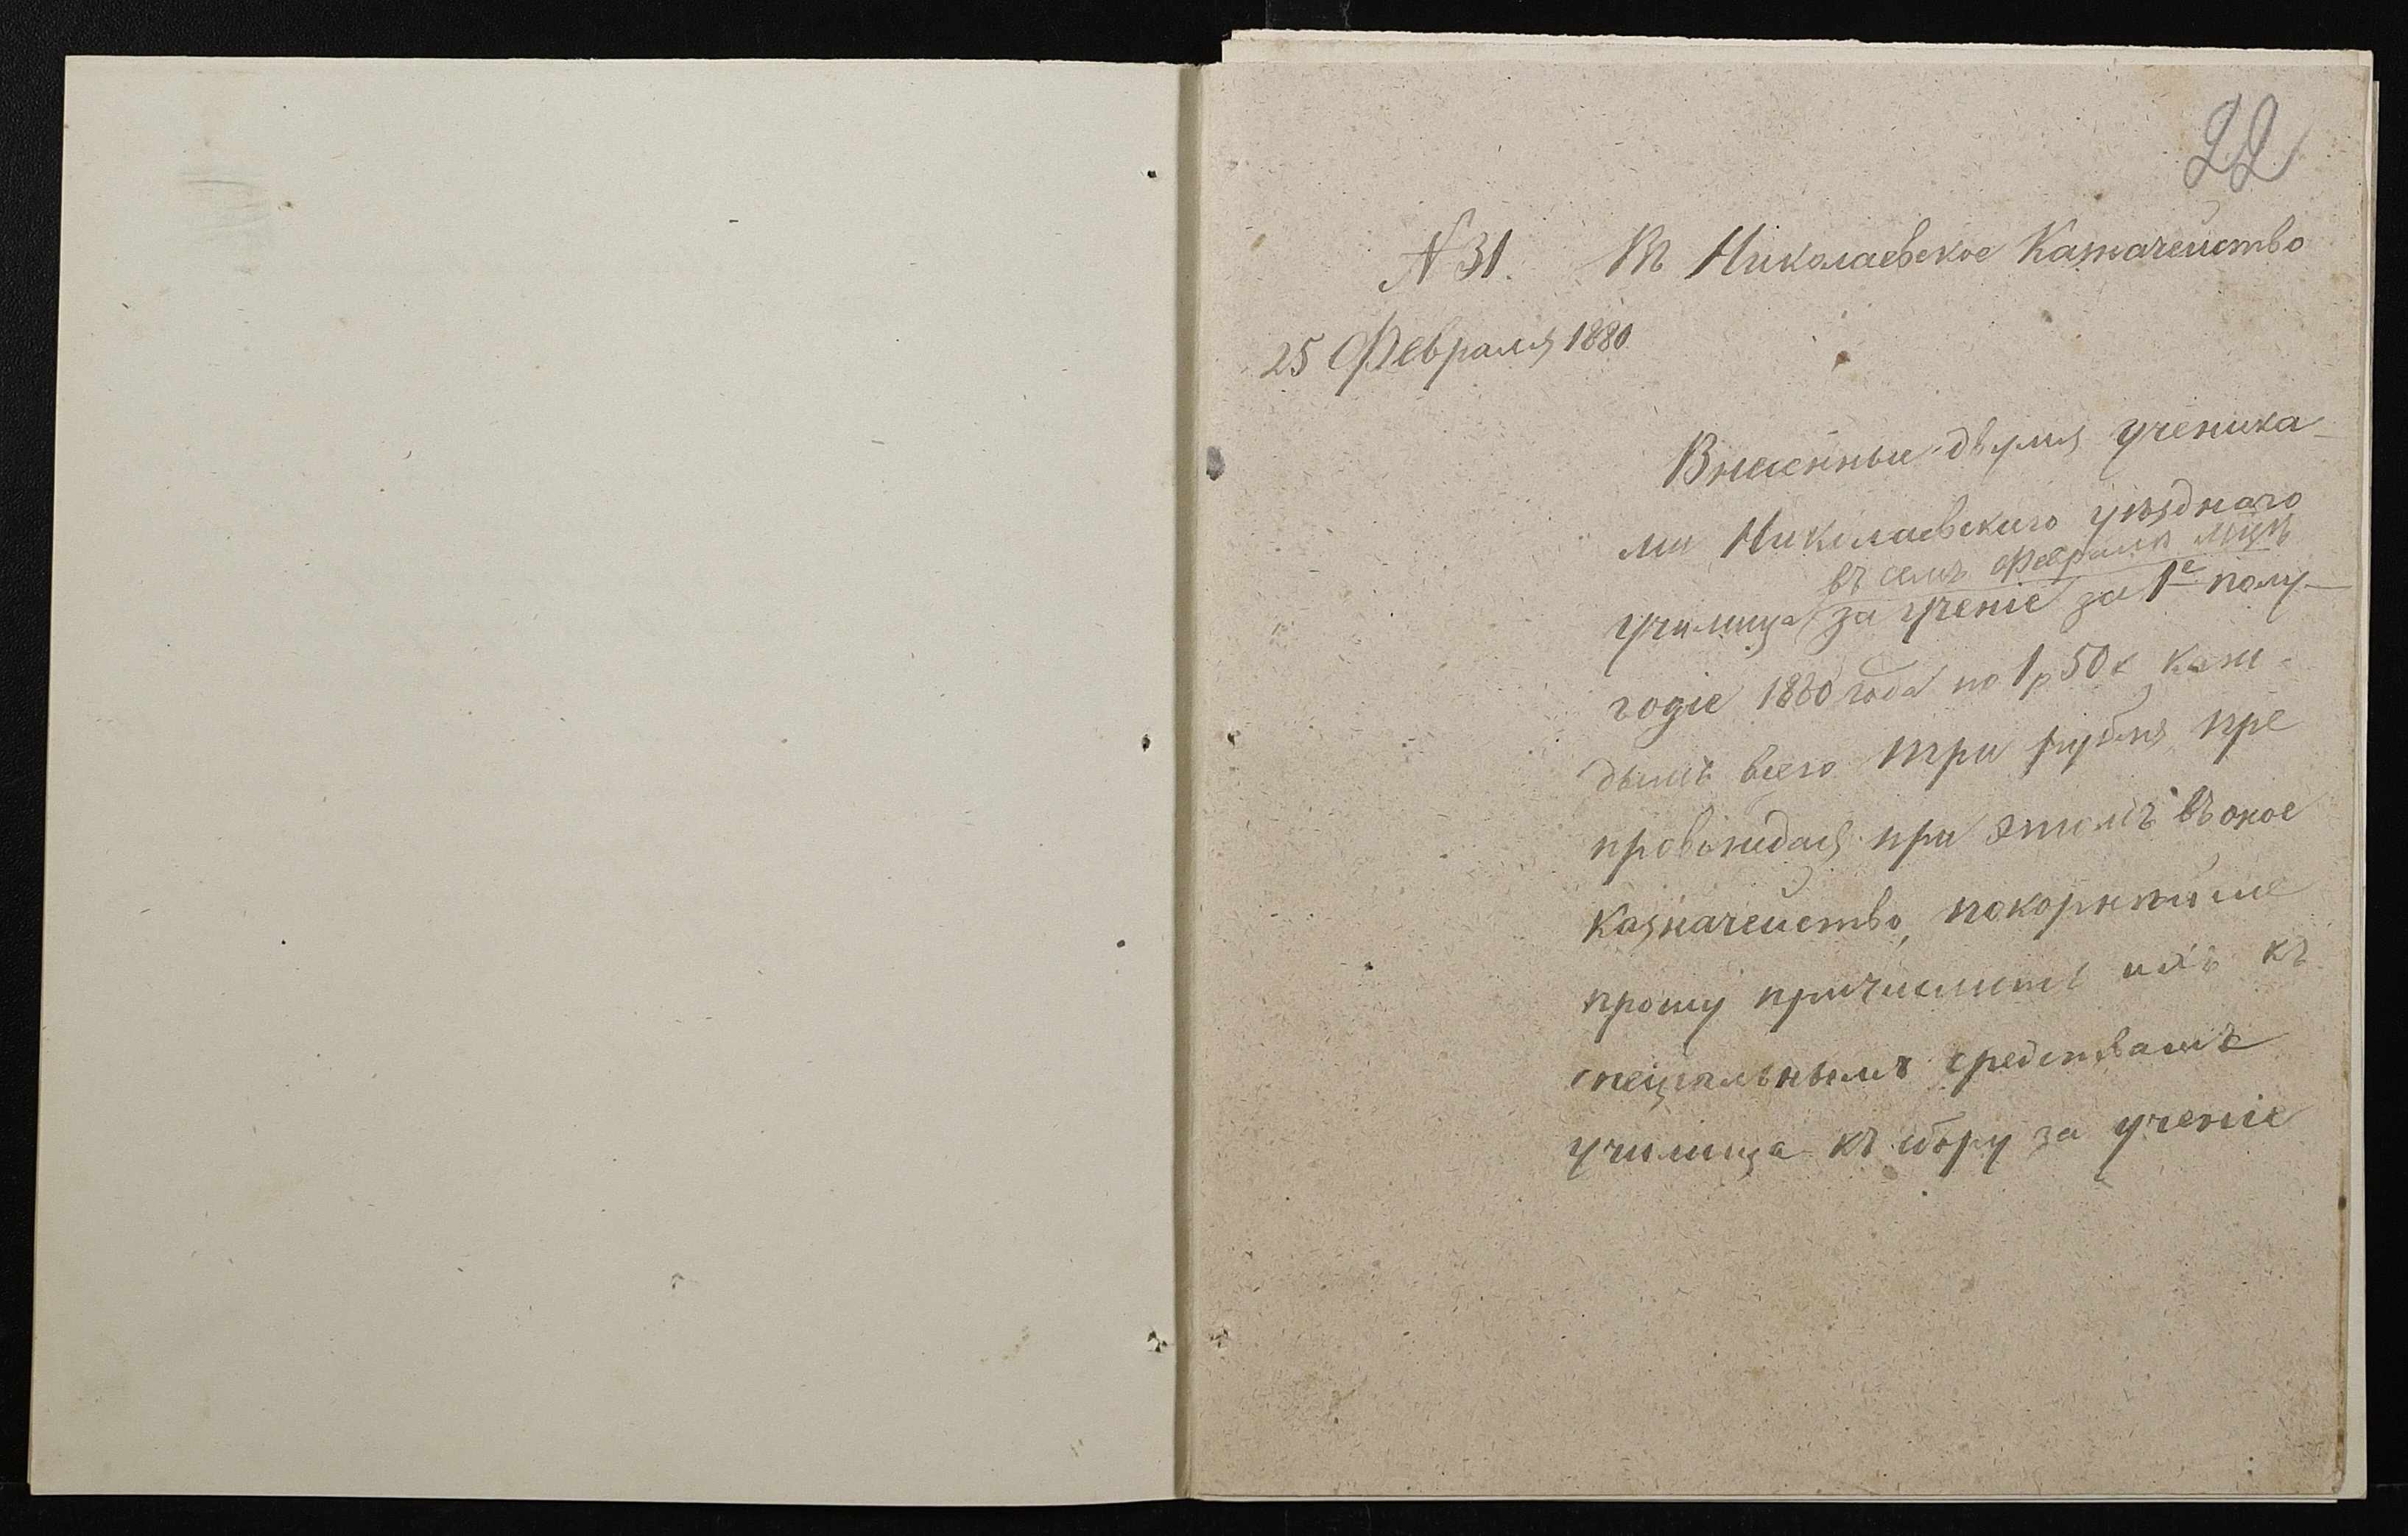 22
N 31. Въ Николаевское Казначейство
25 Февраля 1880
Внесенные двумя ученика-
ми Николаевскаго уѣзднаго
въ семъ Февралѣ мцѣ
училища за ученіе за 1е полу-
годіе 1880 года по 1 р 50 к каж-
дымъ всего три рубля, пре
провождая при этомъ въ оное
Казначейство, покорнѣйше
прошу причислить ихъ къ
спеціальнымъ средствамъ
училища къ сбору за ученіе